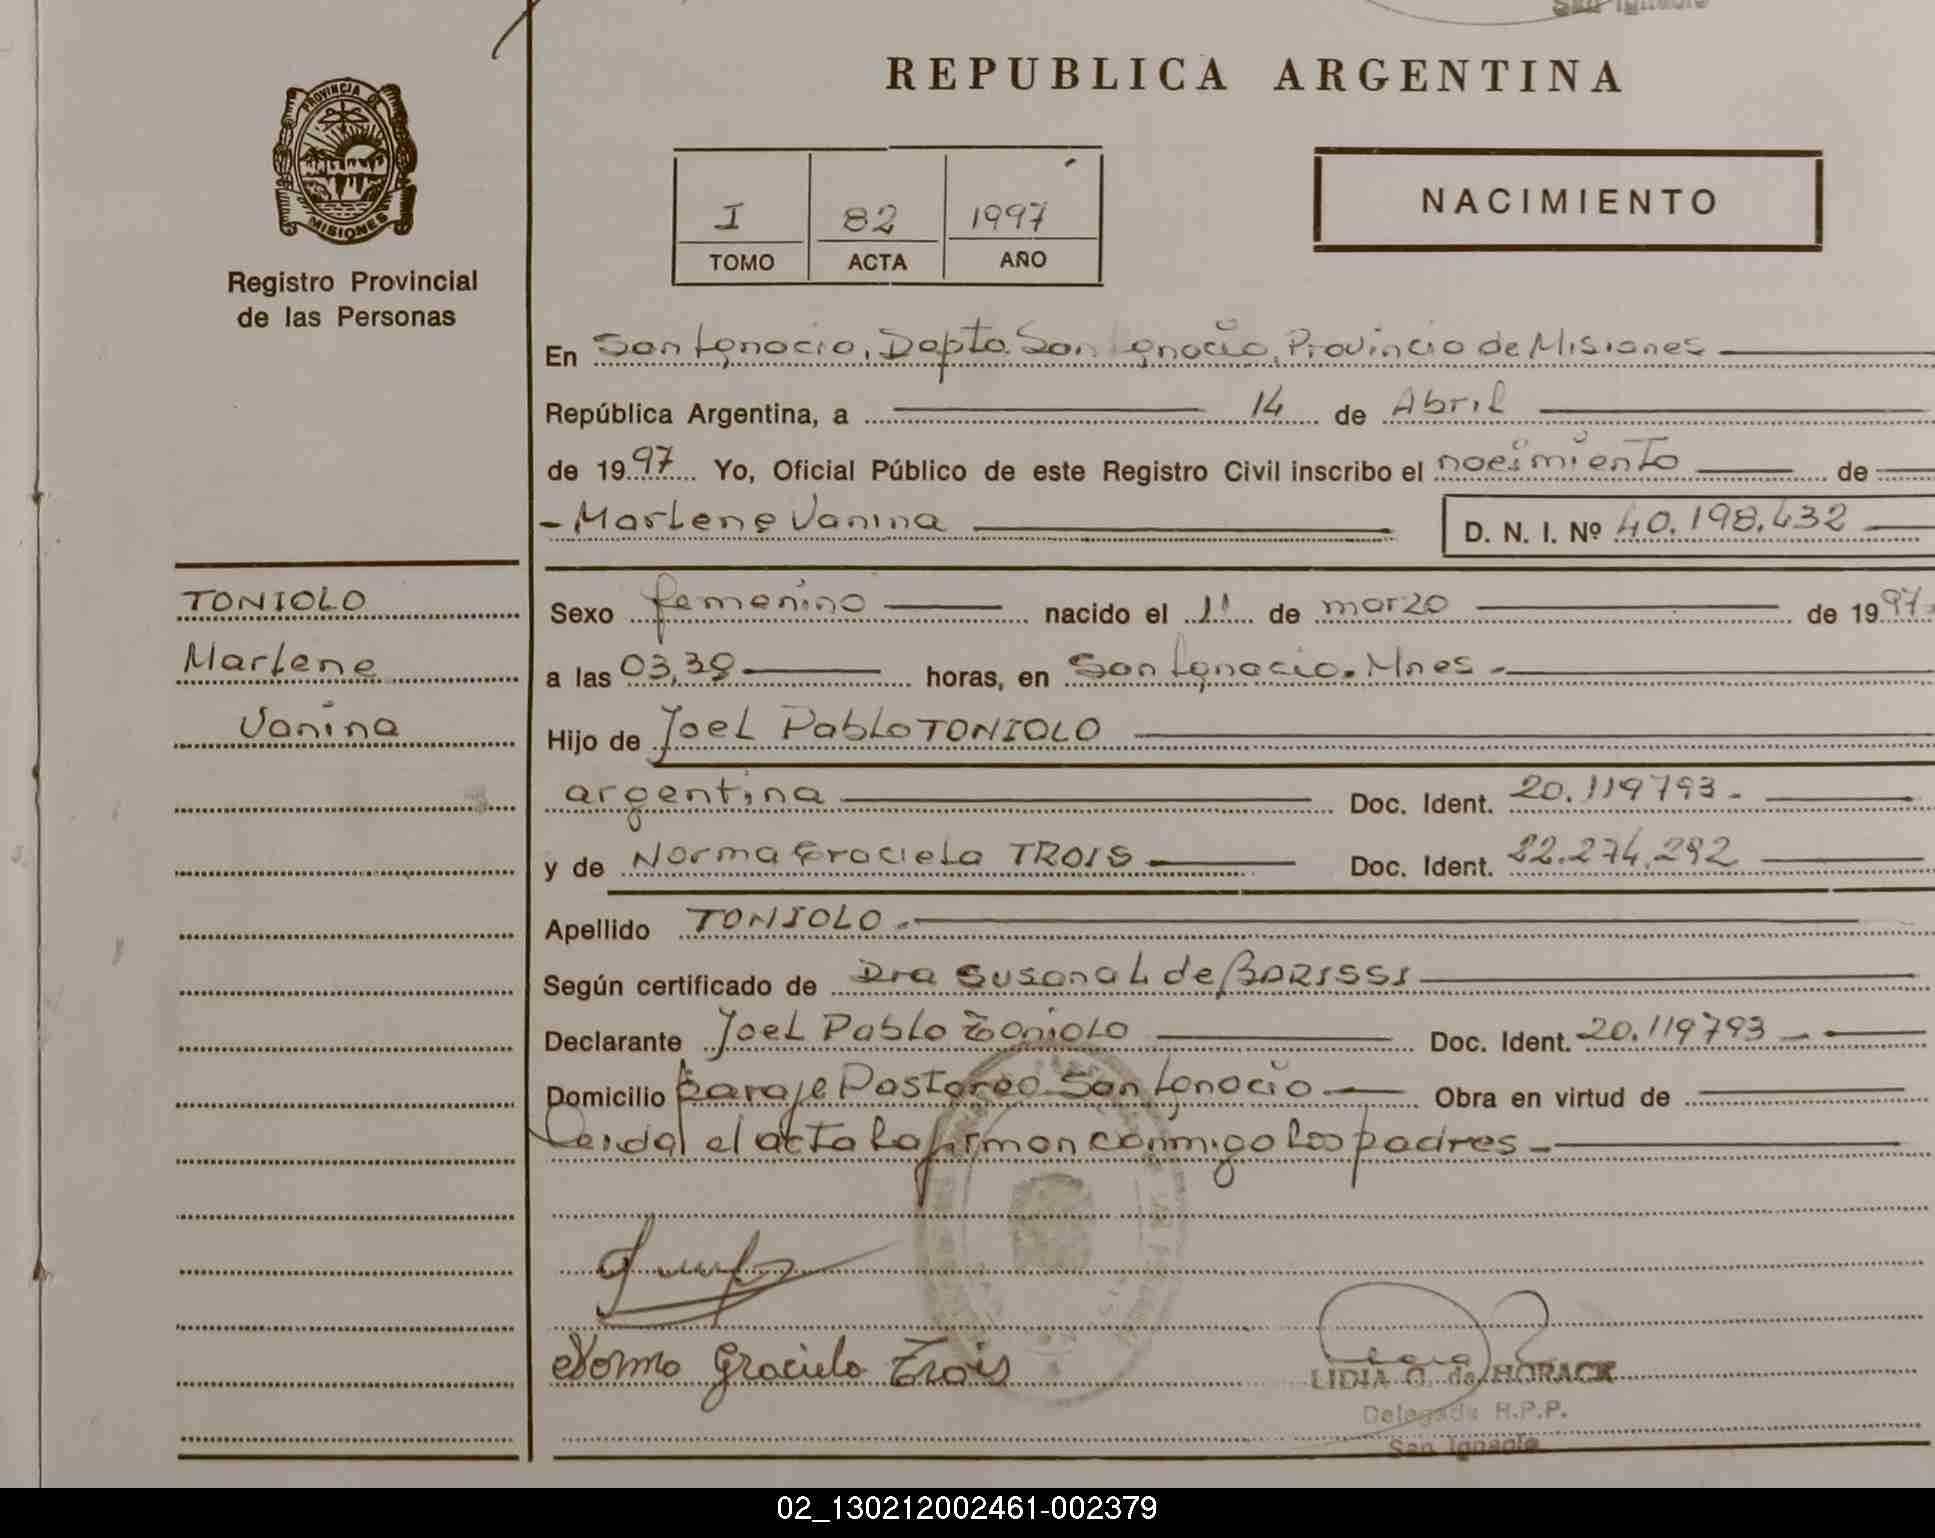 San Ignacio
REPUBLICA ARGENTINA
PROVINCIA DE
MISIONES
Registro Provincial
de las Personas
I 82 1997
TOMO ACTA AÑO
NACIMIENTO
En San Ignacio, Dapto. San Ignacio, Provincia de Misiones
República Argentina, a 14 de Abril
de 1997 Yo, Oficial Público de este Registro Civil inscribo el nacimiento de
- Marlene Vanina D. N. I. Nº 40.198.432
TONIOLO
Marlene
Vanina
Sexo femenino nacido el 11 de marzo de 1997
a las 03,39 horas, en San Ignacio. Mnes -
Hijo de Joel Pablo TONIOLO
argentina Doc. Ident. 20.119793 -
y de Norma Graciela TROIS Doc. Ident. 22.274.292
Apellido TONIOLO -
Según certificado de Dra Susana L de
Declarante Joel Pablo Toniolo Doc. Ident. 20.119793 -
Domicilio paraje Pastoreo San Ignacio - Obra en virtud de
Leida el acta la firman conmigo los padres -
Norma Graciela Trois
LIDIA O. de HORACK
Delegada R.P.P.
San Ignacio
02_130212002461-002379